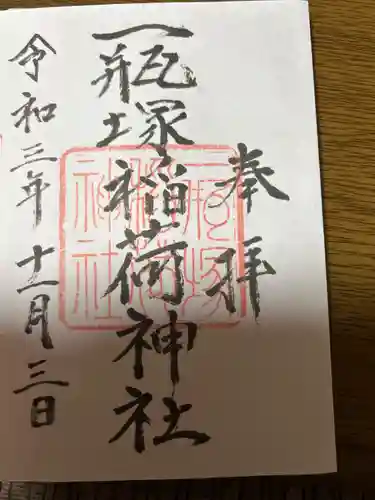 奉拝
一瓶塚稲荷神社
令和三年十一月三日